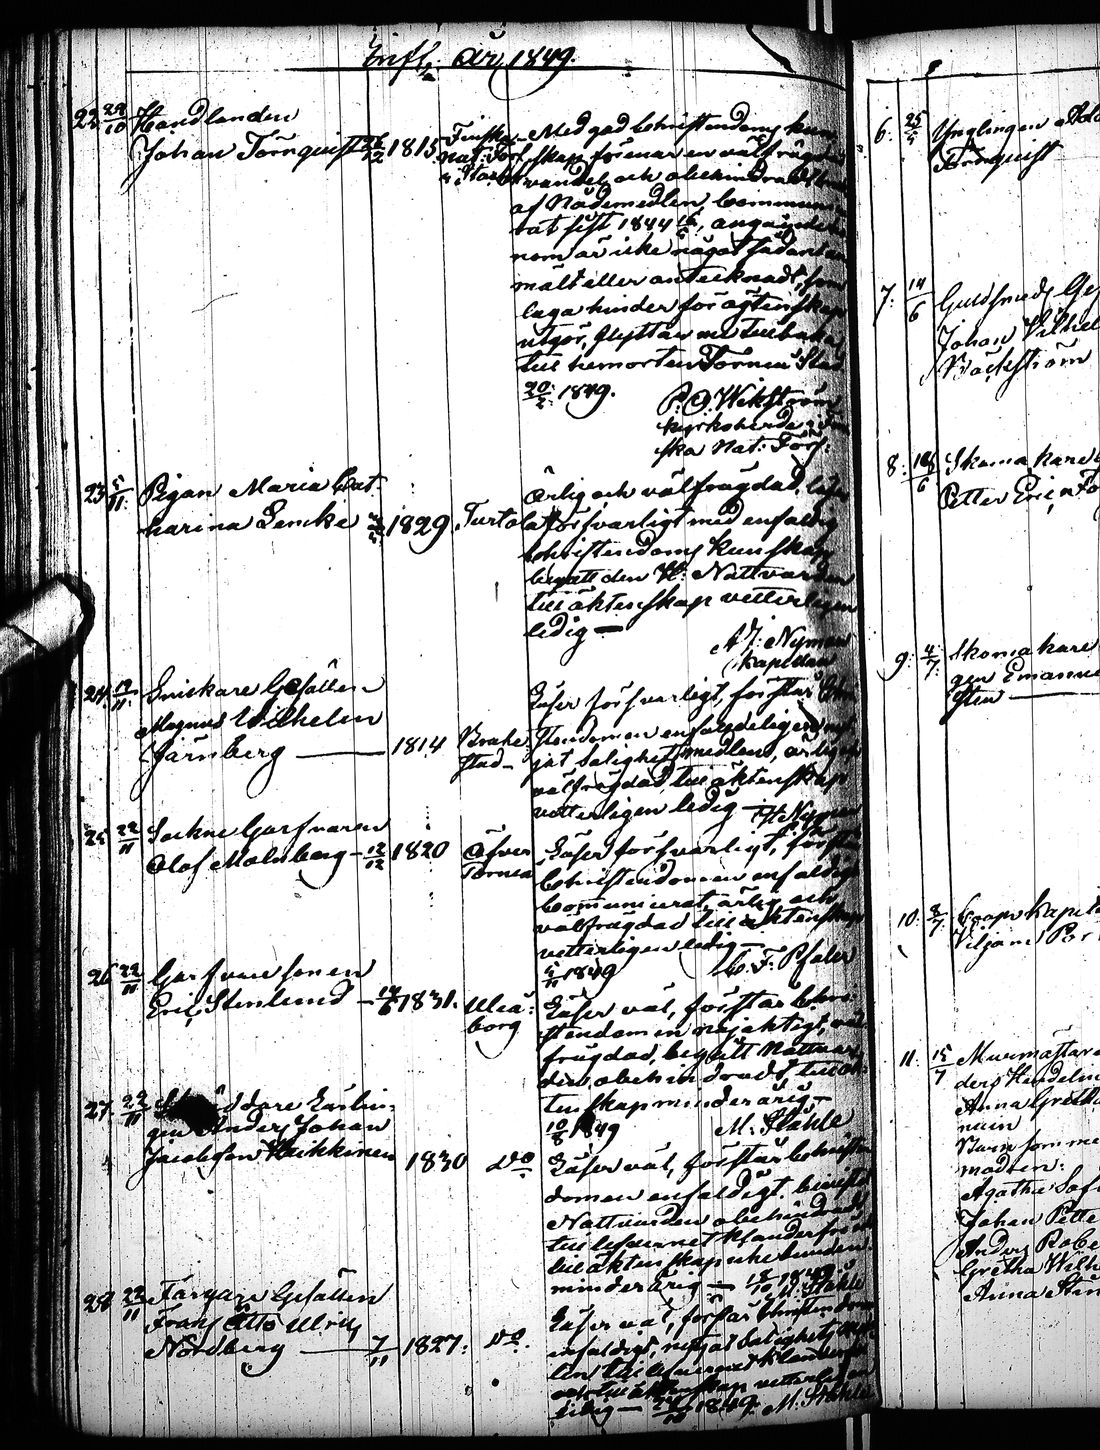 Infl. År 1849.
22 29/10 Handlanden
Johan Törnquist 1815 Finska
Nat: Förs.
i Stockh
Med god Christendoms kun
skap förenar en välfrägdad
vandel, och obehindradt
af Nådemedlen, Communi
rat sist 1844 16/6, angående
nom är icke något sådant
mält eller antecknadt, som
laga hinder för ägtenskap
utgör, flyttar nu tillbaka
till hemorten Torneå Stad
20/2 1849.
P. O. Wikström
kyrkoherde i Fin
ska Nat: Förs:
23 5/11 Pigan Maria Cat-
harina Lencke 1829 Turtola
Ärlig och välfrägdad, läser
försvarligt med enfaldig
Christendoms kunskap
begått den H: Nattvarden
till äktenskap vetterligen
ledig —
A J: Nyman
Kapellan
24 19/11 Snickare Gesällen
Magnus Wilhelm
Järnberg — 1814 Brahe-
stad —
Läser försvarligt, förstår Chri
stendomen enfaldeligen, nyt
jat Salighetsmedlen, ärlig och
välfrägdad, till äktenskap
vetterligen ledig — Nyman
25 22/11 Sockne Garfvaren
Olof Malmberg — 12/12 1820 Öfver
Torneå
Läser försvarligt, förstår
Christendomen enfaldigt
Communicerat, ärlig och
välfrägdad till äktenskap
vetterligen ledig —
5/11 1849 C. F. Pfaler
26 22/11 Garfvare sonen
Eric Stenlund — 1831. Uleå-
borg
Läser väl, förstår Chri-
stendomen nöjaktigt, väl
frägdad, begått Nattvar
den, obehindrad till äk
tenskap minderårig —
10/8 1849 M. Ståhle
27. 22/11 Skräddare Lärlin-
gen Anders Johan
Jacobsson Heikkinen 1830 Do
Läser väl, förstår Christen
domen enfaldigt, bevistat
Nattvarden obehindradt
till lefvernet klanderfri
till äktenskap icke bunden
minderårig — M. Ståhle
28 23/11 Färgare Gesällen
Frans Otto Ulric
Nordberg — 7/11 1827: Do.
Läser väl, förstår Christendom
enfaldigt, nytjat Salighetsmed
len till lefvernet klanderfri
och till äktenskap vetterligen
ledig — 1849. M. Ståhle
6: 25/5 Ynglingen
Törnquist
7: 14/6 Guldsmeds Ges
Johan Vilhel
Bäckström
8: 18/6 Skomakare
Petter Eric
9: 4/7 Skomakare
gen Emanue
sten
10. 8/7 Coop: Kapite
Viljam Por
11. 15/7 Murmästare
ders Hendelin
Anna Greta
nien
Barn som me
modren:
Agatha Sof
Johan Pette
Anders Robe
Gretha Wilh
Anna Stin